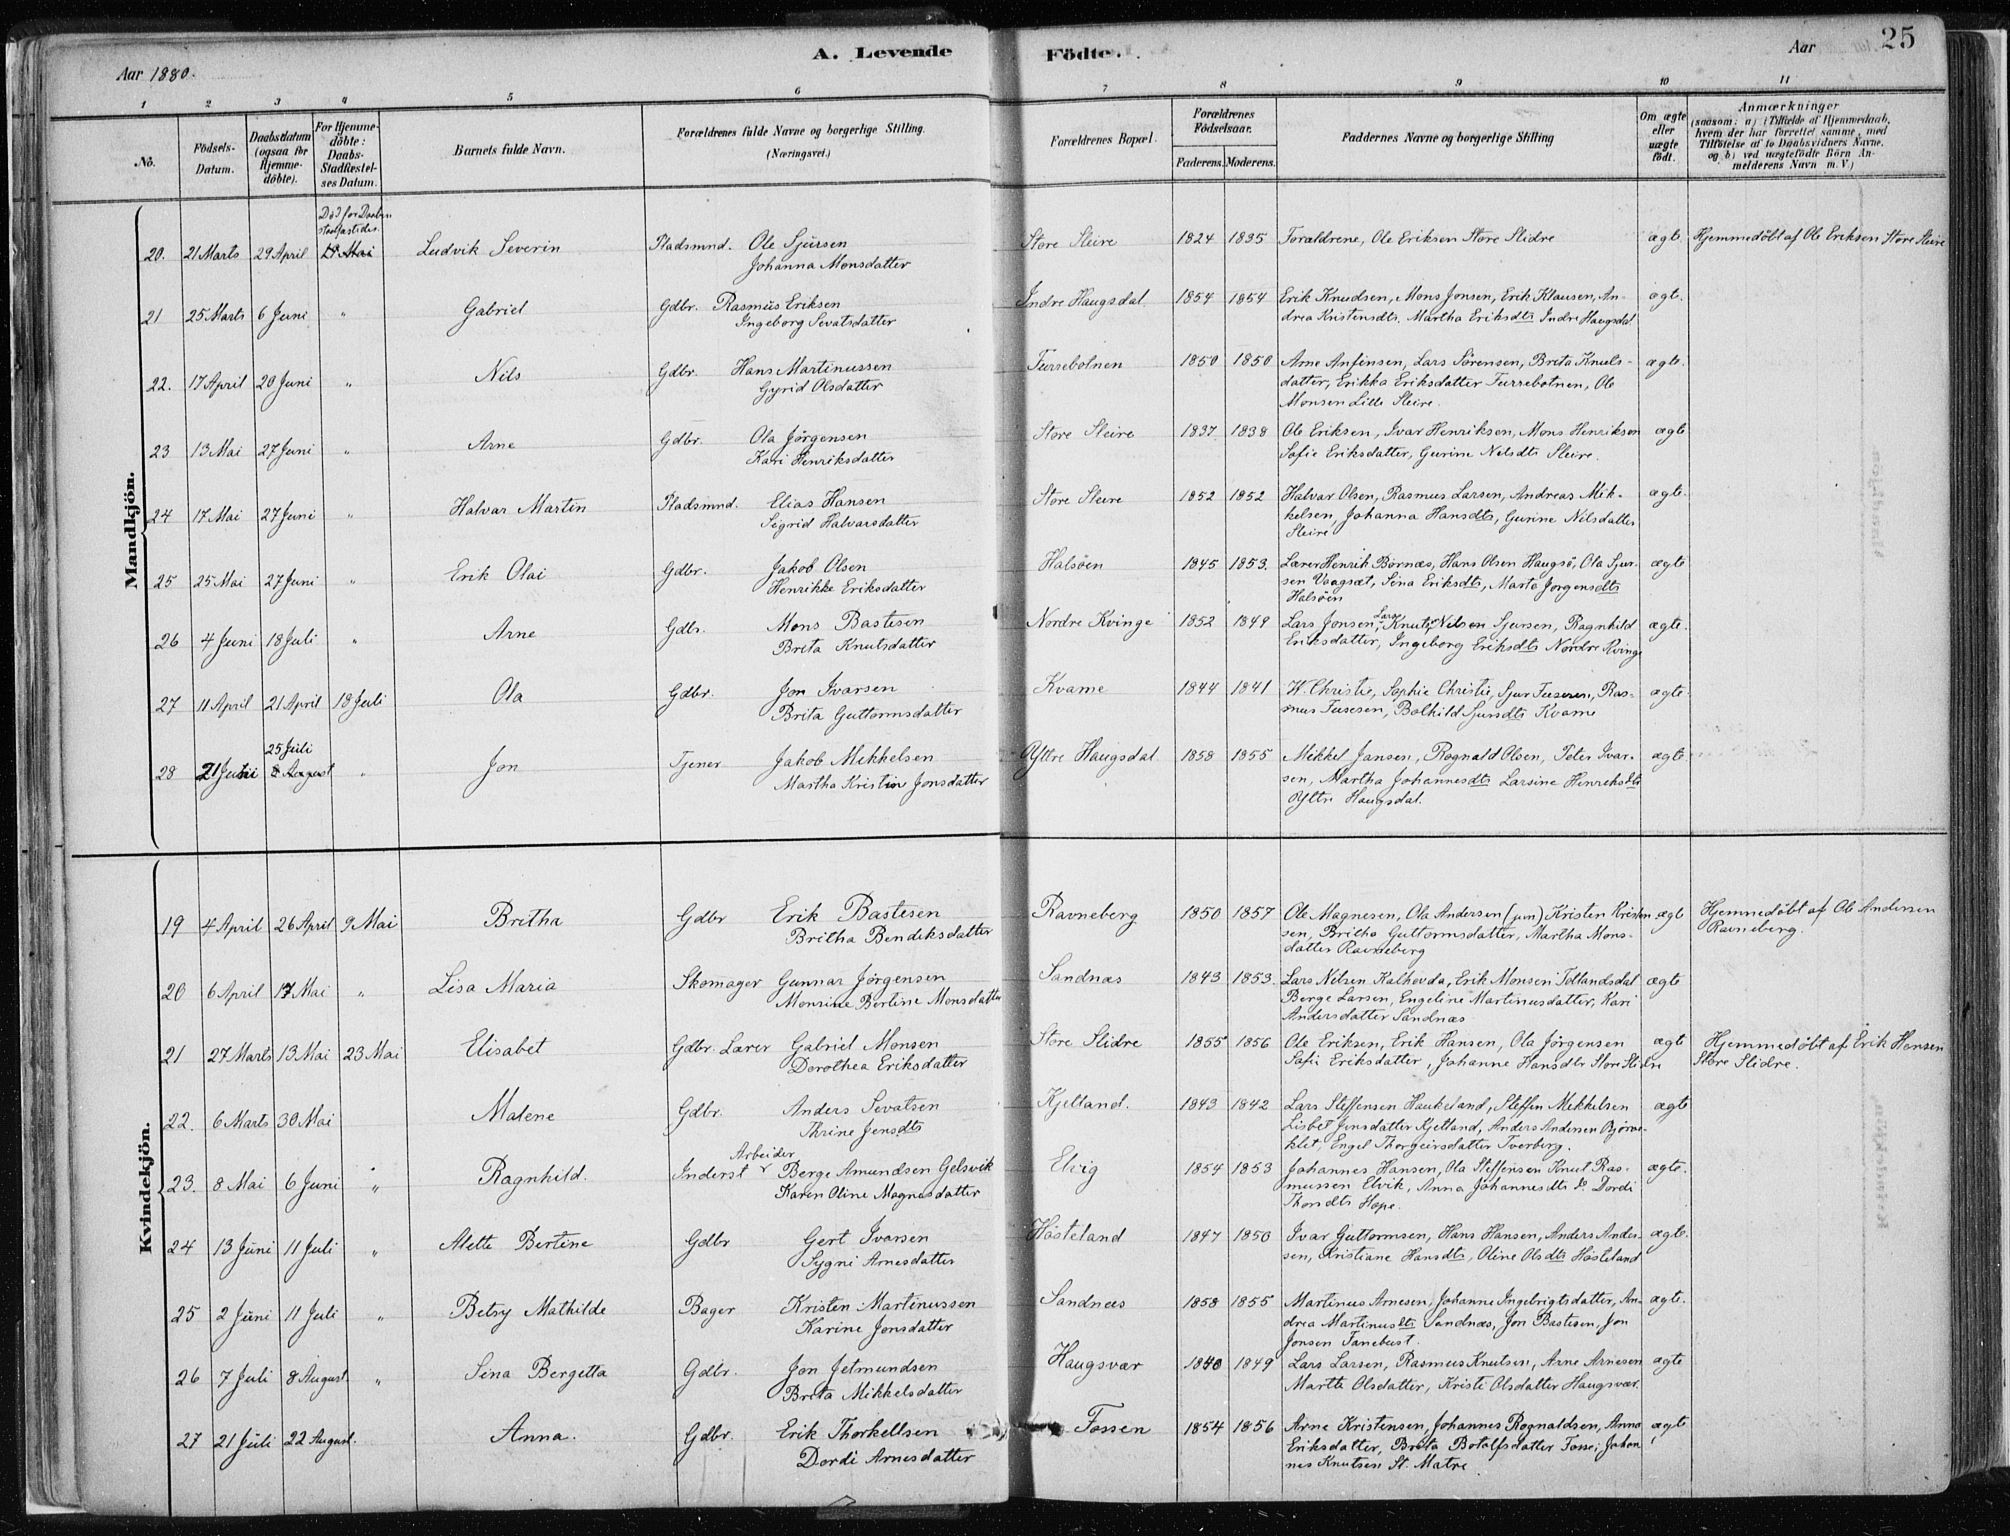 Aar 1880.
A. Levende Födte.
Aar
25
1 2 3 4 5 6 7 8 9 10 11
No.
Födsels-Datum.
Daabsdatum (ogsaa for Hjemme-döbte).
For Hjemme-döbte: Daabs-Stadfæstel-ses Datum.
Barnets fulde Navn.
Forældrenes fulde Navne og borgerlige Stilling. (Næringsvei.)
Forældrenes Bopæl.
Forældrenes Födselsaar.
Faderens. Moderens.
Faddernes Navne og borgerlige Stilling
Om ægte eller uægte födt.
Anmærkninger
(saasom: a) i Tilfælde af Hjemmedaab, hvem der har forrettet samme, med Tilföielse af to Daabsvidners Navne, og b) ved uægtefödte Börn An-melderens Navn m. V.)
Mandkjön.
Död før Daaben stadfæstedes
20. 21 Marts 29 April 19 Mai Ludvik Severin Pladsmnd. Ole Sjursen Store Sleire 1824 1835 Forældrene, Ole Eriksen Store Slidre ægte Hjemmedøbt af Ole Eriksen Store Sleire
Johanna Monsdatter
21 25 Marts 6 Juni " Gabriel Gdbr. Rasmus Eriksen Indre Haugsdal 1854 1854 Erik Knudsen, Mons Jonsen, Erik Klausen, An- ægte.
Ingeborg Sevatsdatter drea Kristensdtr. Martha Eriksdtr Indre Haugsdal
22. 17 April 20 Juni " Nils Gdbr. Hans Martinussen Furrebotnen 1850 1850 Arne Anfinsen, Lars Sørensen, Brita Knuts- ægte.
Gyrid Olsdatter datter, Erikka Eriksdatter Furrebotnen, Ole
Monsen Lille Sleire.
23 13 Mai 27 Juni " Arne Gdbr. Ola Jørgensen Store Sleire 1837 1838 Ole Eriksen, Ivar Henriksen, Mons Henriksen ægte
Kari Henriksdatter Sofie Eriksdatter, Gurine Nelsdtr Sleire.
24 17 Mai 27 Juni " Halvar Martin Pladsmnd. Elias Hansen Store Sleire 1852 1852 Halvar Olsen, Rasmus Larsen, Andreas Mik- ægte.
Sigrid Halvarsdatter kelsen, Johanna Hansdtr, Gurine Nilsdatter
Sleire
25 25 Mai 27 Juni " Erik Olai Gdbr. Jakob Olsen Halsöen 1845 1853. Lærer Henrik Børnæs, Hans Olsen Haugsö, Ola Sjur- ægte
Henrikke Eriksdatter sen Vaagsæt, Sena Eriksdtr, Marta Jorgensdtr
Halsöen
26 4 Juni 18 Juli " Arne Gdbr. Mons Bastesen Nordre Kvinge 1852 1849 Lars Jonsen, Lars Knuts, Nilsen Sjursen, Ragnhild ægte.
Brita Knutsdatter Eriksdatter, Ingeborg Eriksdtr Nordre Kvinge
27 11 April 21 April 18 Juli Ola Gdbr. Jon Ivarsen Kvame 1844 1841 W. Christie, Sophie Christie, Sjur Tusesen, Ras- ægte.
Brita Guttormsdatter mus Tusesen, Bolhild Sjursdtr Kvame
25 Juli
28 21 Juni 8 August " Jon Tjener Jakob Mikkelsen Yttre Haugsdal 1858 1855 Mikkel Jansen, Rognald Olsen, Peter Ivar- ægte
Martha Kristin Jonsdatter sen, Martha Johannesdtr Larsine Henriksdtr
Yttre Haugsdal.
Kvindekjön.
19 4 April 26 April 9 Mai Britha Gdbr Erik Bastesen Ravneberg 1850 1857 Ole Magnesen, Ola Andersen (jun) Kristen Kristen- ægte Hjemmedøbt af Ole Andersen
Britha Bendiksdatter sen, Britha Guttormsdatter, Martha Mons- Ravneberg.
datter Ravneberg
20 6 April 17 Mai " Lisa Maria Skomager Gunnar Jørgensen Sandnæs 1843 1853. Lars Nilsen Kalhovda, Erik Monsen Totlandsdal ægte
Monsine Bertine Monsdatter Berge Larsen, Engeline Martinusdatter, Kari
Andersdatter Sandnæs
21 27 Marts 13 Mai 23 Mai Elisabet Gdbr. Lærer Gabriel Monsen Store Slidre 1855 1856 Ole Eriksen, Erik Hansen, Ola Jörgensen ægte Hjemmedøbt af Erik Hansen
Dorothea Eriksdatter Sofie Eriksdatter, Johanne Hansdtr Store Slidre Store Slidre.
22. 6 Marts 30 Mai Malene Gdbr. Anders Sevatsen Kjelland. 1843 1842 Lars Steffensen Haukeland, Steffen Mekkelsen ægte
Thrine Jensdtr Lisbet Jensdatter Kjetland, Anders Andersen Bjørne-
klet, Engel Thorgeirsdatter Tverberg.
Arbeider
23. 8 Mai 6 Juni " Ragnhild. Inderst Berge Amundsen Gelsvik Elvig 1854 1853 Johannes Hansen, Ola Steffensen Knut Ras- ægte.
Karen Oline Magnesdatter mussen Elvik, Anna Johannesdtr do. Dordi
Thordtr Hope.
24 13 Juni 11 Juli " Alette Bertine Gdbr Gert Ivarsen Hösteland 1847 1850 Ivar Guttormsen, Hans Hansen, Anders Ander- ægte.
Sygni Arnesdatter sen, Kristiane Hansdtr, Oline Olsdtr Hösteland
25 2 Juni 11 Juli " Betsy Mathilde Bager Kristen Martinussen Sandnæs 1858 1855 Martinus Arnesen, Johanne Ingebrigtsdatter, An- ægte.
Karine Jonsdatter drea Martinusdtr Sandnæs, Jon Bastesen, Jon
Jonsen Tanebust.
26 7 Juli 8 August " Sina Bergetta Gdbr. Jon Jetmundsen Haugsvær 1840 1849 Lars Larsen, Rasmus Knutsen, Arne Arnesen ægte
Brita Mikkelsdatter Martte Olsdatter, Kristi Olsdatter Haugsvær.
27 21 Juli 22 August. Anna. Gdbr. Erik Thorkellsen Fossen 1854 1856 Arne Kristensen, Johannes Rognaldsen, Anna ægte
Dordi Arnesdatter Eriksdatter, Brita Botolfsdatter Fosse, Johan
nes Knutsen St. Matre